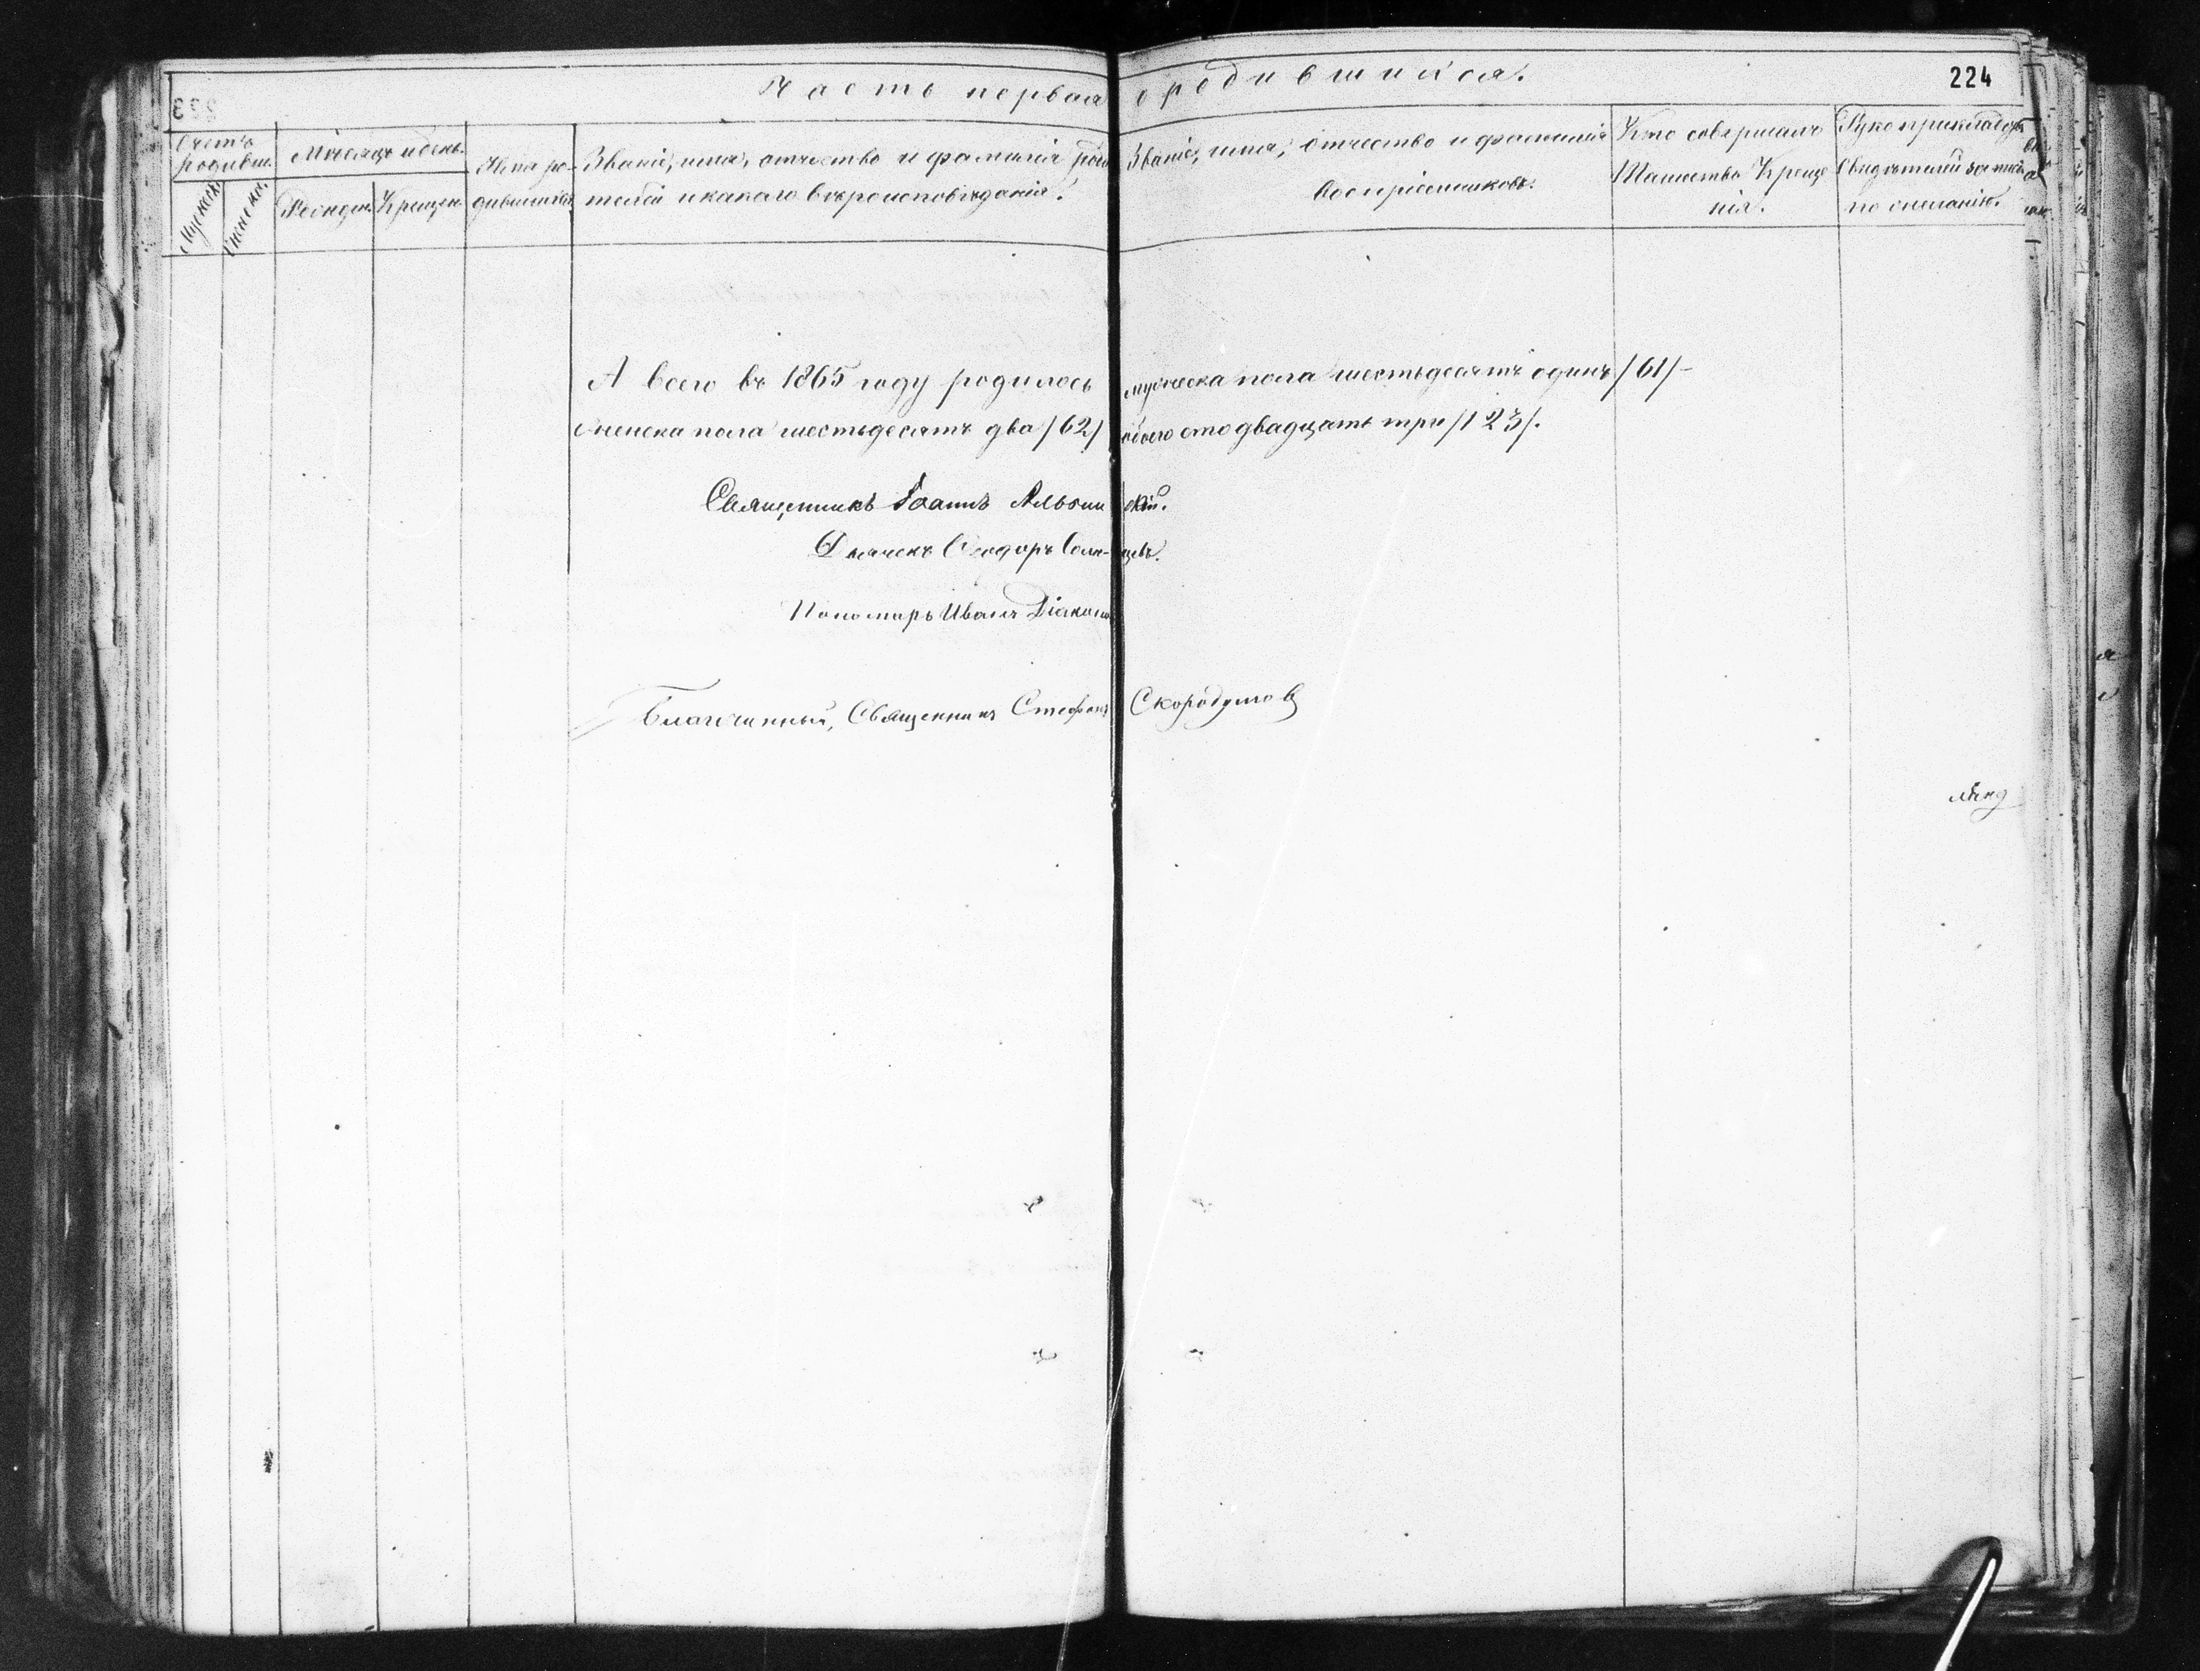 Часть первая о родившихся.
224
223
Счетъ родивш.
Мужеска.
Женска.
Мѣсяцъ и день.
Рожден.
Крещен.
Имя ро-
дившихся
Званіе, имя, отчество и фамилія роди
телей и какого вѣроисповѣданія.
Званіе, имя, отчество и фамилія
Воспріемниковъ.
Кто совершалъ
Таинство Креще
нія.
Рукоприкладст
Свидѣтелей записи
по желанію.
А всего въ 1865 году родилось мужеска пола шестьдесятъ одинъ /61/-
женска пола шестьдесятъ два /62/ обоего сто двадцать три /123/.
Священникъ Іоаннъ Альбинскій.
Дьячекъ Ѳеодоръ
Пономарь Иванъ Діаконов
Благочинный, Священникъ Стефанъ Скородумовъ